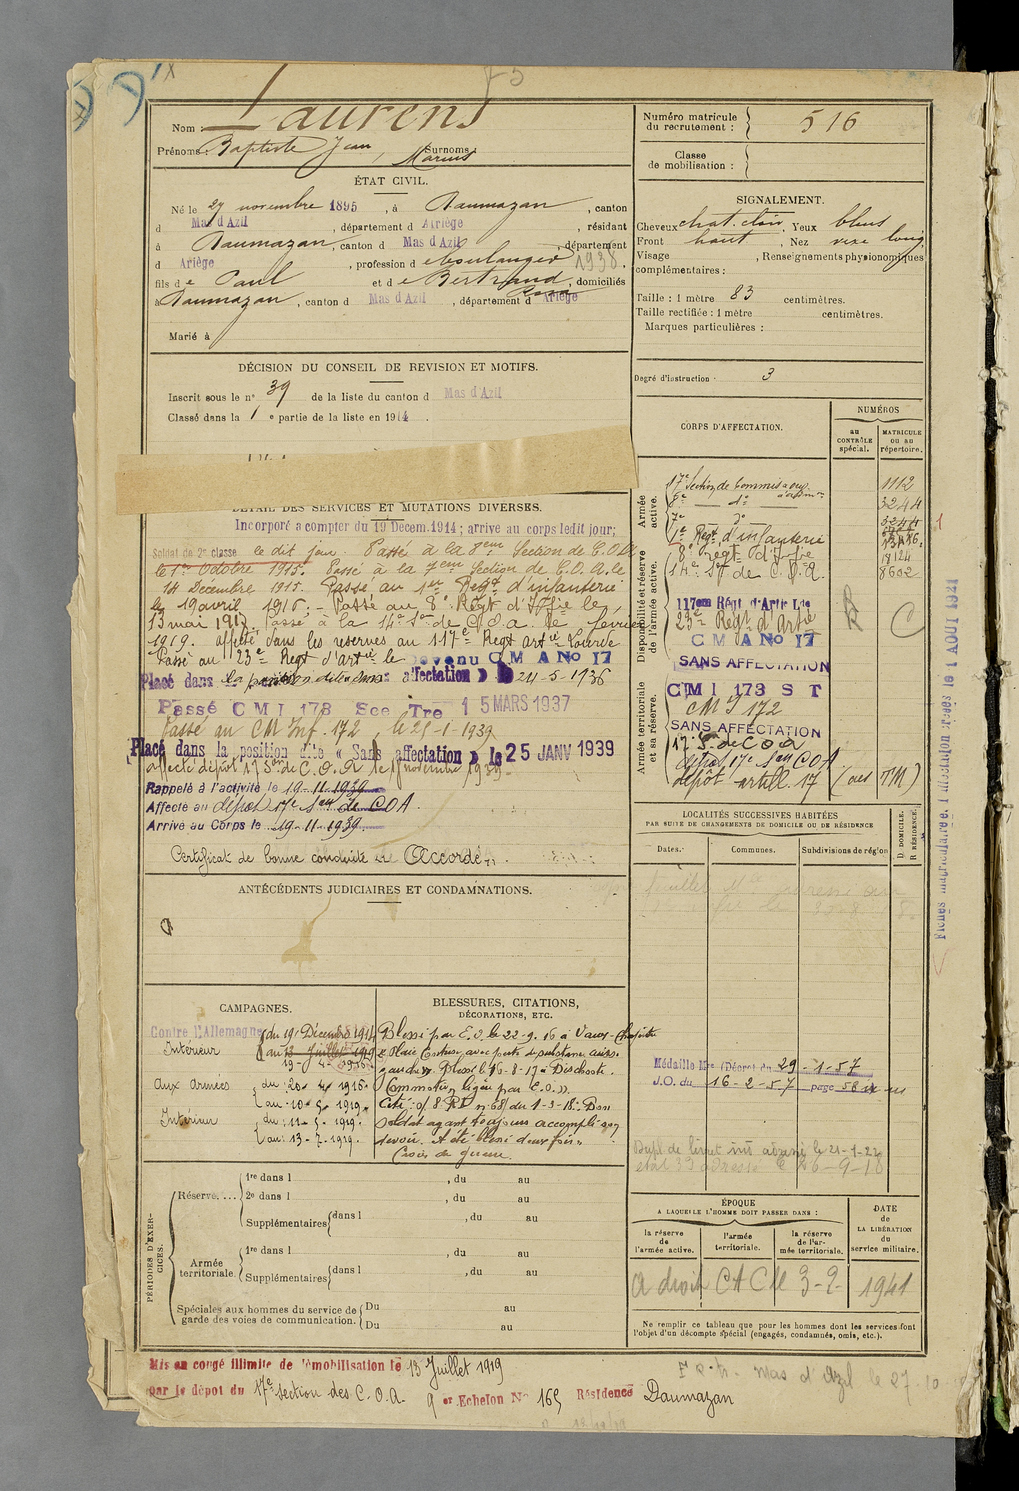 Nom : Laurens
Prénoms : Baptiste Jean, Marius Surnoms :
ÉTAT CIVIL.
Né le 27 novembre 1895, à Daumazan, canton
d Mas d'Azil, département d Ariège, résidant
à Daumazan, canton d Mas d'Azil, département
d Ariège, profession de boulanger 1938.
fils de Paul et de Bertrand Rosa, domiciliés
à Daumazan, canton d Mas d'Azil, département d Ariège
Marié à
DÉCISION DU CONSEIL DE REVISION ET MOTIFS.
Inscrit sous le n° 39 de la liste du canton d Mas d'Azil
Classé dans la 1e partie de la liste en 1914.
DÉTAIL DES SERVICES ET MUTATIONS DIVERSES.
Incorporé a compter du 19 Décem. 1914; arrive au corps ledit jour;
Soldat de 2e classe le dit jour. Passé à la 8eme Section de C.O.A.
le 1er Octobre 1915. Passé à la 7eme Section de C.O.A. le
14 Décembre 1915. Passé au 1er Régt d'infanterie
le 19 avril 1916. - Passé au 8e Régt d'Iffie le
13 mai 1917. Passé à la 14e Son de C.O.A. le février
1919. affecté dans les reserves au 117e Regt artie Lourde
Passé au 23e Regt d'artie le Devenu C M A No 17
Placé dans la position dite dans affectation » le 24-5-1936
Passé C M I 173 Sce Tre 15 MARS 1937
Passé au CM Inf. 172, le 25-1-1939
Placé dans la position dite « Sans affectation » le 25 JANV 1939
affecté dépôt 17 Son de C.O.A le 1 novembre 1939
Rappelé à l'activité le 19-11-1939
Affecté au dépôt 17e Son de COA.
Arrivé au Corps le 19-11-1939
Certificat de bonne conduite Accordé.
ANTÉCÉDENTS JUDICIAIRES ET CONDAMNATIONS.
CAMPAGNES.
Contre l'Allemagne du 19 Décembre 1914
Intérieur au 13 Juillet 1919
19-4-1916
aux Armées du 20-4-1916.
au 10-5-1919.
Intérieur du 11-5-1919.
au 13-7-1919.
BLESSURES, CITATIONS,
DÉCORATIONS, ETC.
Blessé par E.O. le 22-9-16 à Vaux-Chapitre
« Plaie Contuse avec perte de substance cuisse
gauche ». Blessé le 16-8-17 à Dixchoote.
« Commotion légère par E.O. ».
Cité: o/ 8e RI n° 68 du 1-3-18: Bon
soldat ayant toujours accompli son
devoir. A été blessé deux fois ».
Croix de guerre.
PÉRIODES D'EXERCICES.
Réserve....
1re dans l , du au
2e dans l , du au
Supplémentaires dans l , du au
Armée
territoriale.
1re dans l , du au
Supplémentaires dans l , du au
Spéciales aux hommes du service de
garde des voies de communication.
Du au
Du au
Mis en congé illimité de démobilisation le 13 Juillet 1919
par le dépôt du 17e Section des C.O.A. 9 er Echelon No 165 Résidence Daumazan
Numéro matricule
du recrutement : 516
Classe
de mobilisation :
SIGNALEMENT.
Cheveux chat. clair Yeux bleus
Front haut, Nez vexe long
Visage , Renseignements physionomiques
complémentaires :
Taille : 1 mètre 83 centimètres.
Taille rectifiée : 1 mètre centimètres.
Marques particulières :
Degré d'instruction : 3
CORPS D'AFFECTATION.
NUMÉROS
au
CONTRÔLE
spécial.
MATRICULE
ou au
répertoire.
Armée
active.
17e Section de Commis & ouv. d'admon 1112
8e — do — 3244
7e do 3244
1e Régt d'infanterie
Disponibilité et réserve
de l'armée active.
8e Regt d'Iffie 17124
14e Son de C.O.A. 8602
117em Régt d'Artie Lde
23e Regt d'Artie
C M A No 17
SANS AFFECTATION
Armée territoriale
et sa réserve.
CMI 173 S T
CM I 172
SANS AFFECTATION
17 Son de COA
dépôt 17e Son COA
dépôt artill 17
LOCALITÉS SUCCESSIVES HABITÉES
PAR SUITE DE CHANGEMENTS DE DOMICILE OU DE RÉSIDENCE
Dates.
Communes.
Subdivisions de région
D. DOMICILE.
R. RÉSIDENCE.
Médaille Mre (Décret du 29-1-57
J.O. du 16-2-57 page
ÉPOQUE
A LAQUELLE L'HOMME DOIT PASSER DANS :
la réserve
de
l'armée active.
l'armée
territoriale.
la réserve
de l'ar-
mée territoriale.
DATE
de
LA LIBÉRATION
du
service militaire.
A droit CACM 3-9- 1941
Ne remplir ce tableau que pour les hommes dont les services font
l'objet d'un décompte spécial (engagés, condamnés, omis, etc.).
Mas d'Azil le 27-10